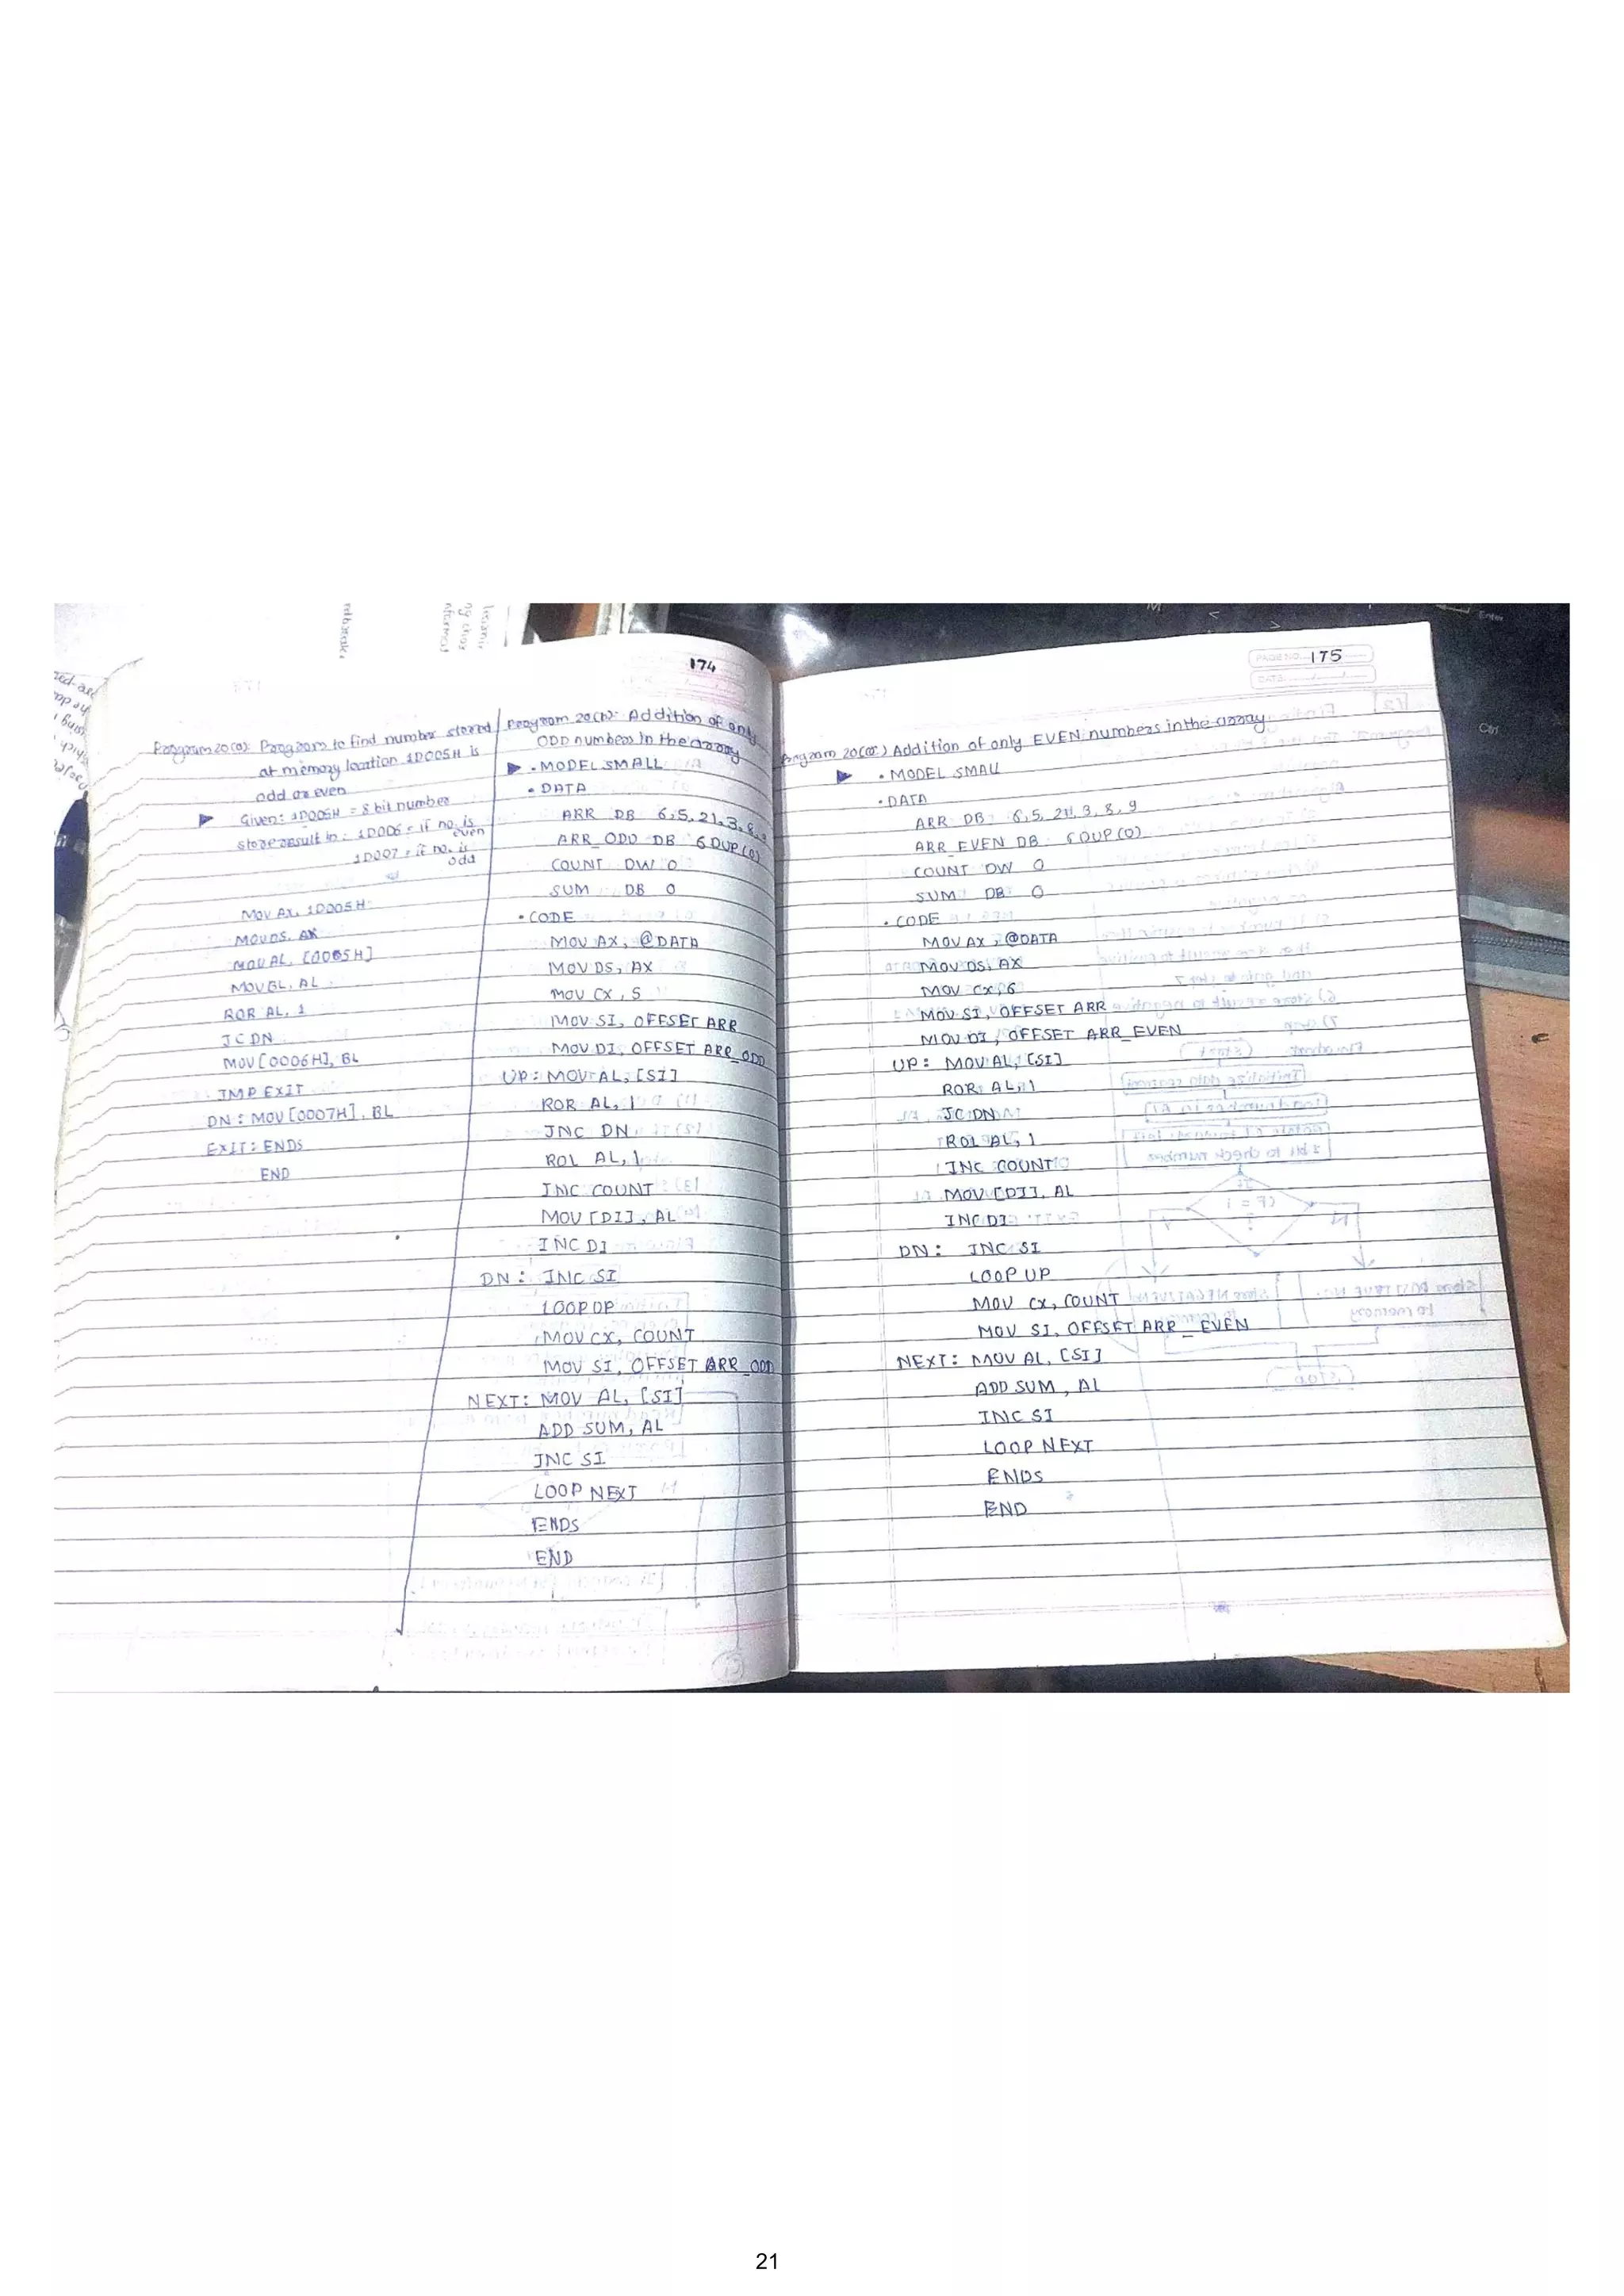 174
Program 20(a): Program to find number stored
at memory location 1D005H is
odd or even
Given: 1D005H = 8 bit number
store result in: 1D006 = if no. is
even
1D007 = if no. is
odd
MOV AX, 1D005H
MOV DS, AX
MOV AL, [0005H]
MOV BL, AL
ROR AL, 1
JC DN
MOV [0006H], BL
JMP EXIT
DN: MOV [0007H], BL
EXIT: ENDS
END
Program 20(b): Addition of only
ODD numbers in the array
.MODEL SMALL
.DATA
ARR DB 6,5,21,3,8,
ARR_ODD DB 6 DUP(0)
COUNT DW 0
SUM DB 0
.CODE
MOV AX, @DATA
MOV DS, AX
MOV CX, 5
MOV SI, OFFSET ARR
MOV DI, OFFSET ARR_ODD
UP: MOV AL, [SI]
ROR AL, 1
JNC DN
ROL AL, 1
INC COUNT
MOV [DI], AL
INC DI
DN: INC SI
LOOP UP
MOV CX, COUNT
MOV SI, OFFSET ARR_ODD
NEXT: MOV AL, [SI]
ADD SUM, AL
INC SI
LOOP NEXT
ENDS
END
PAGE NO. 175
DATE
Program 20(c) Addition of only EVEN numbers in the array
.MODEL SMALL
.DATA
ARR DB 6,5,21,3,8,9
ARR_EVEN DB 6 DUP(0)
COUNT DW 0
SUM DB 0
.CODE
MOV AX, @DATA
MOV DS, AX
MOV CX, 6
MOV SI, OFFSET ARR
MOV DI, OFFSET ARR_EVEN
UP: MOV AL, [SI]
ROR AL, 1
JC DN
ROL AL, 1
INC COUNT
MOV [DI], AL
INC DI
DN: INC SI
LOOP UP
MOV CX, COUNT
MOV SI, OFFSET ARR_EVEN
NEXT: MOV AL, [SI]
ADD SUM, AL
INC SI
LOOP NEXT
ENDS
END
Enter
Ctrl
21